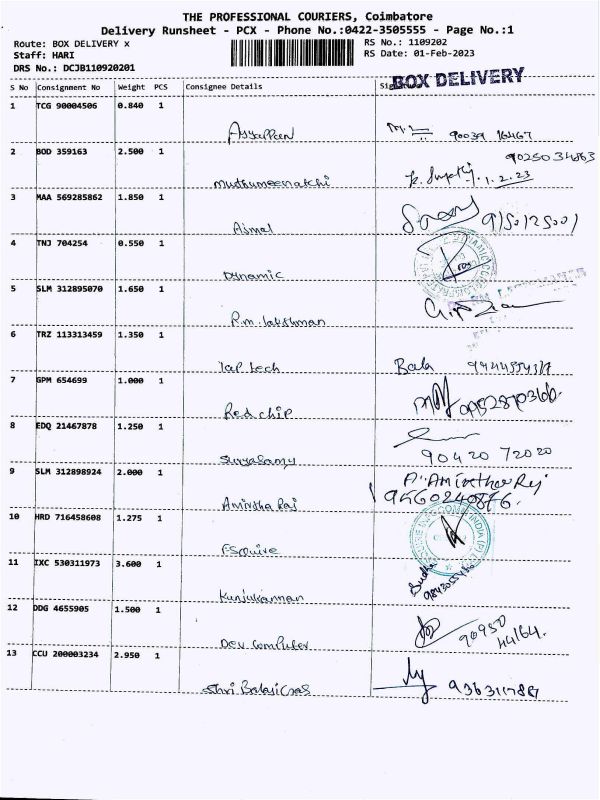 THE PROFESSIONAL COURIERS, Coimbatore
Delivery Runsheet - PCX - Phone No.:0422-3505555 - Page No.:1
Route: BOX DELIVERY x RS No.: 1109202
Staff: HARI RS Date: 01-Feb-2023
DRS No.: DCJB110920201
BOX DELIVERY
S No Consignment No Weight PCS Consignee Details
1 TCG 90004506 0.840 1
Ayyappan 90039 16467
2 BOD 359163 2.500 1 90250 34863
Muthumeenatchi 1.2.23
3 MAA 569285862 1.850 1
Ajmal
4 TNJ 704254 0.550 1
Dynamic
5 SLM 312895070 1.650 1
R.m. lakshman
6 TRZ 113313459 1.350 1
Tap tech Bala
7 GPM 654699 1.000 1
Red chip
8 EDQ 21467878 1.250 1
Suryasamy 90420 72020
9 SLM 312898924 2.000 1
Amirtha Raj
10 HRD 716458608 1.275 1
Esquire
11 IXC 530311973 3.600 1
Kunjukannan
12 DDG 4655905 1.500 1
Dev Computer 90950 44164.
13 CCU 200003234 2.950 1
Shri Balaji Gas